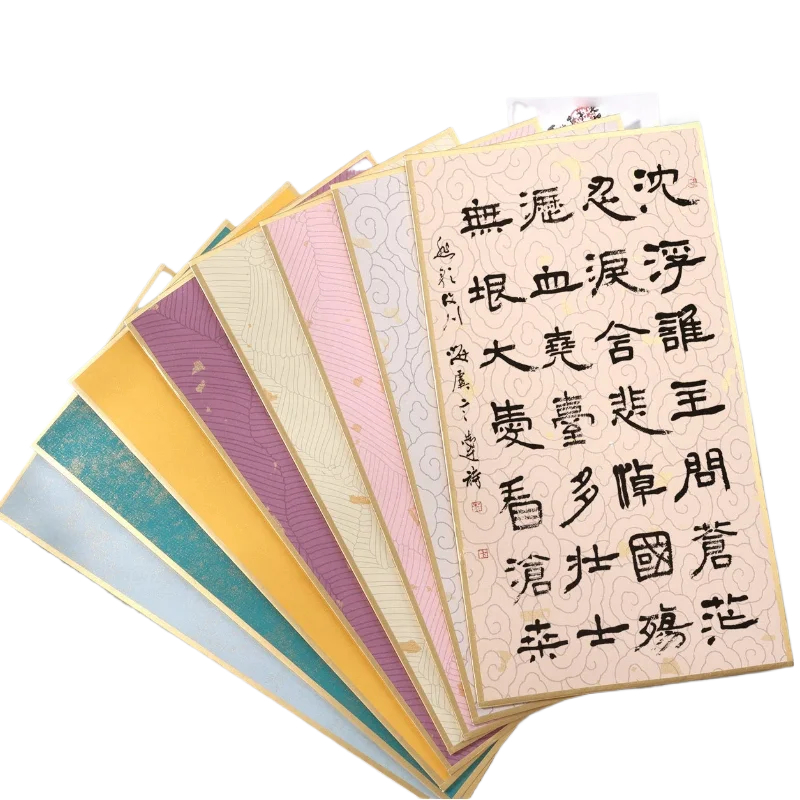 沈浮誰主問蒼茫
忍淚含悲悼國殤
瀝血堯臺多壯士
無垠大愛看滄桒
川 海虞 詩